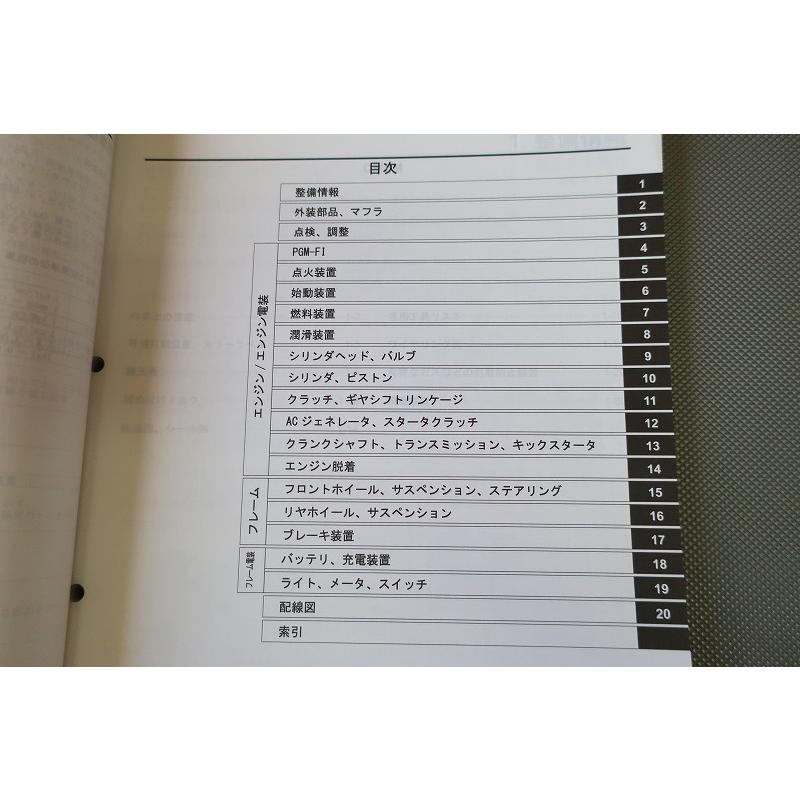 目次
整備情報 1
外装部品、マフラ 2
点検、調整 3
エンジン/エンジン電装
PGM-FI 4
点火装置 5
始動装置 6
燃料装置 7
潤滑装置 8
シリンダヘッド、バルブ 9
シリンダ、ピストン 10
クラッチ、ギヤシフトリンケージ 11
ACジェネレータ、スタータクラッチ 12
クランクシャフト、トランスミッション、キックスタータ 13
エンジン脱着 14
フレーム
フロントホイール、サスペンション、ステアリング 15
リヤホイール、サスペンション 16
ブレーキ装置 17
フレーム電装
バッテリ、充電装置 18
ライト、メータ、スイッチ 19
配線図 20
索引